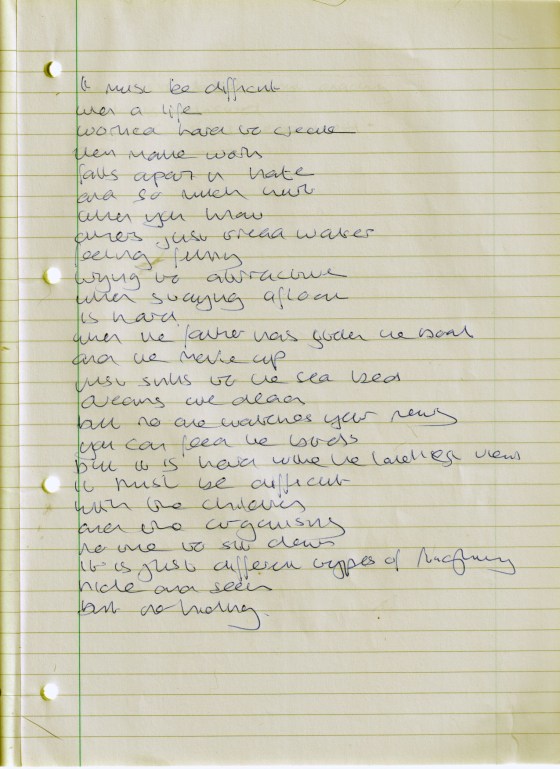 it must be difficult
when a life
worked hard to create
then make work
falls apart in hate
and so much hurt
when you know
others just tread water
feeling funny
trying to attractive
when staying afloat
is hard
when the father has gotten the boat
and the make up
just sinks to the sea bed
dreams are dead
but no one watches your
you can feed the birds
but it is hard the view
it must be difficult
with the children
and the organising
no one to sit down
it is just different types of
hide and seek
but no hiding.